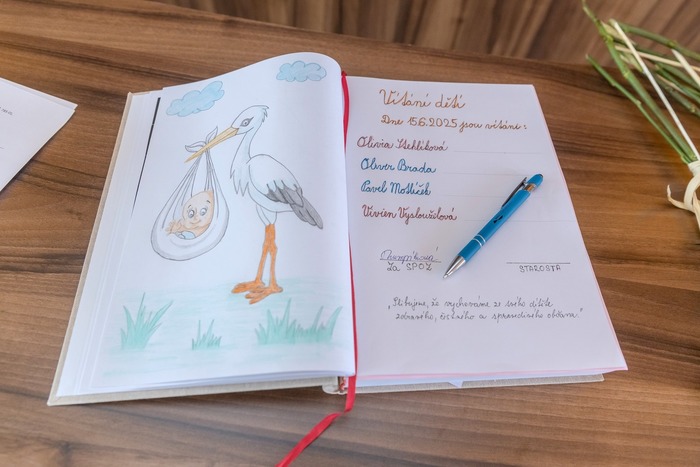 Vítání dětí
Dne 15.6.2025 jsou vítáni:
Olivia Stehlíková
Oliver Brada
Pavel Motlíček
Vivien Vysloužilová
za SPOZ
STAROSTA
„Slibujeme, že vychováme ze svého dítěte
zdravého, čestného a správného občana."